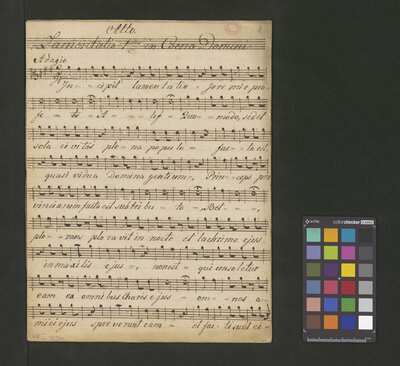 Alto
Lamentatio 1ma in Coena Domini
Adagio
In- cipit lamentatio Jere miæ pro-
fe- tæ A- lef Quo- modo, sedet
sola civitas ple- na populo fac- ta est
quasi vidua Domina gentium, Prin- ceps pro
vinciarum facta est sub tri bu- to Bet-
plo- rans plo ra vit in nocte et lacrimæ ejus
in maxillis ejus, non est qui consoletur
eam ex omnibus charis ejus om- nes a-
mici ejus spre ve runt eam et fac- ti sunt ei-
colorchecker